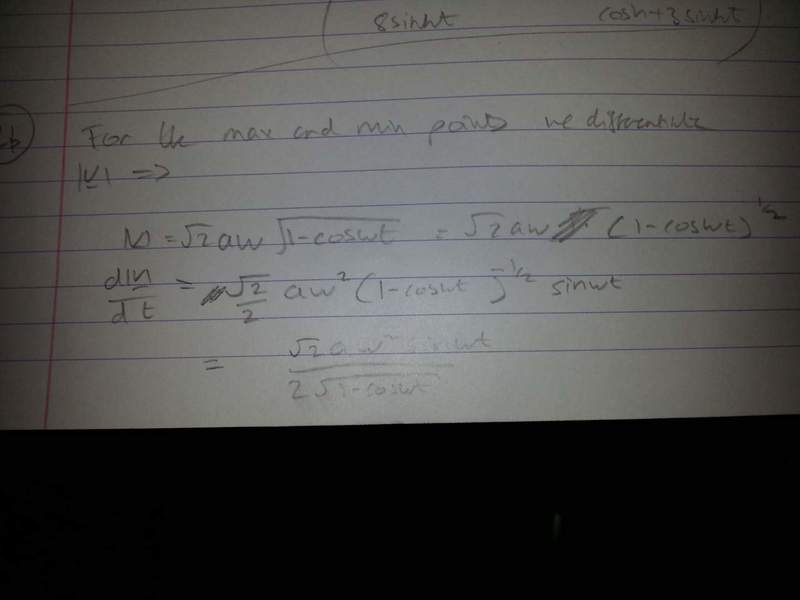 8sinht cosh+3sinht
For the max and min points we differentiate
|v| =>
|v| = √2 aw √1-coswt = √2 aw (1-coswt)^1/2
d|v|/dt = √2/2 aw² (1-coswt)^-1/2 sinwt
= √2 aw² sinwt / 2√1-coswt